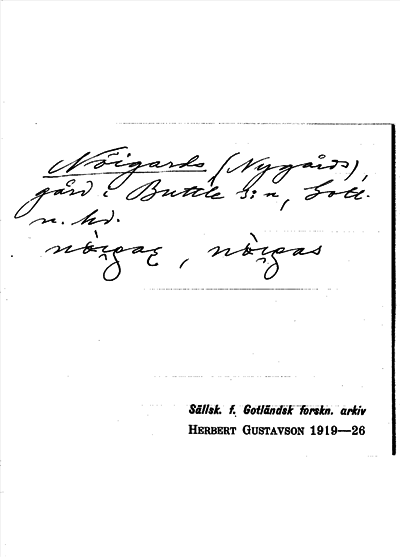 Nöigards (Nygårds),
gård i Buttle s:n, Gotl.
n. hd.
nöigaʂ, nöigas
Sällsk. f. Gotländsk forskn. arkiv
HERBERT GUSTAVSON 1919—26